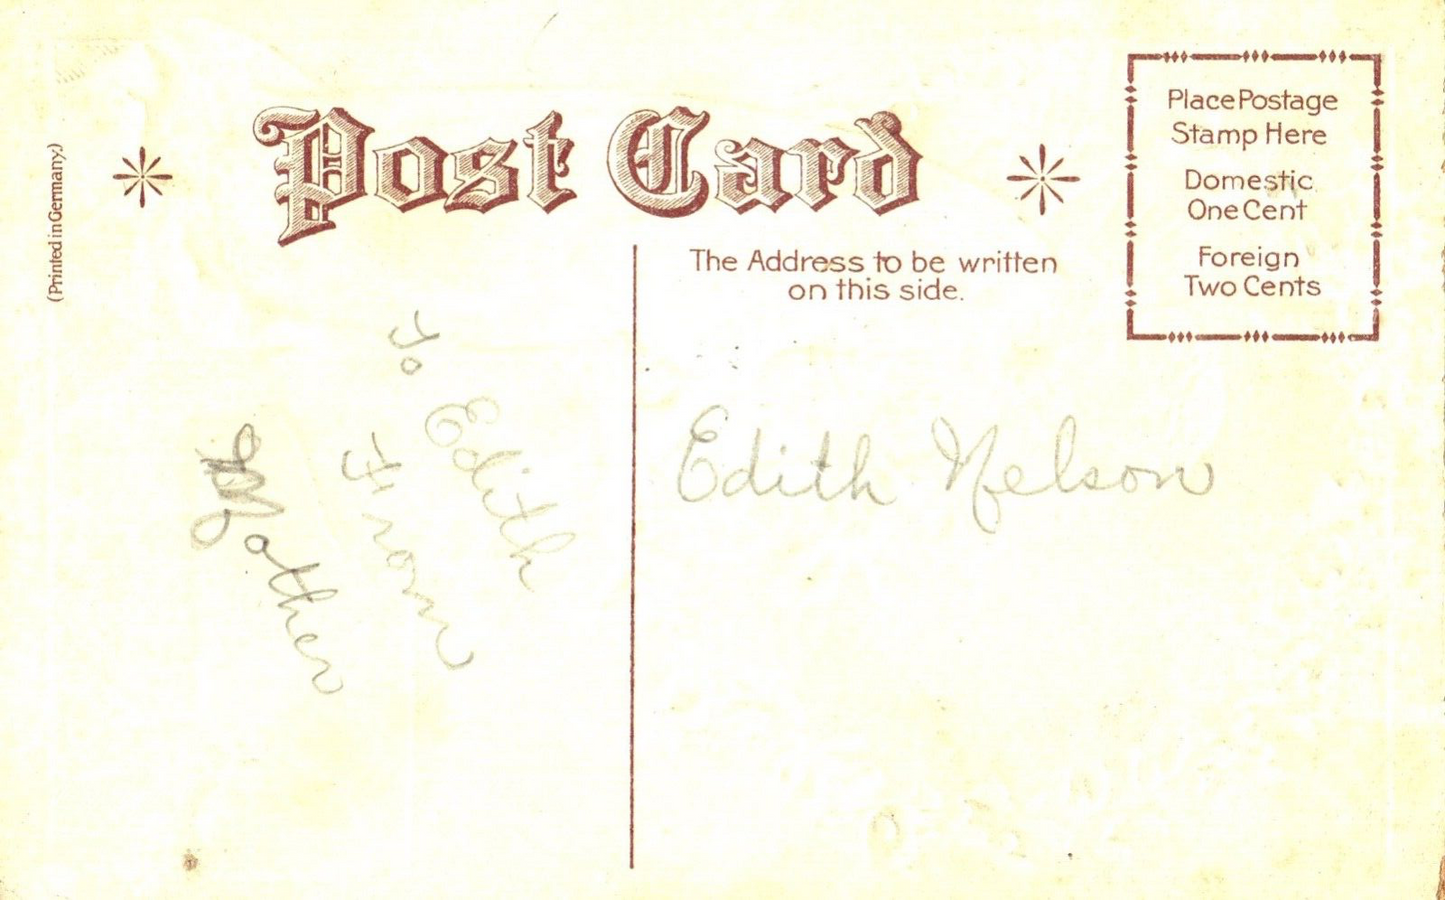 (Printed in Germany.)
Post Card
Place Postage
Stamp Here
Domestic
One Cent
Foreign
Two Cents
The Address to be written
on this side.
To
Edith
From
Mother
Edith Nelson